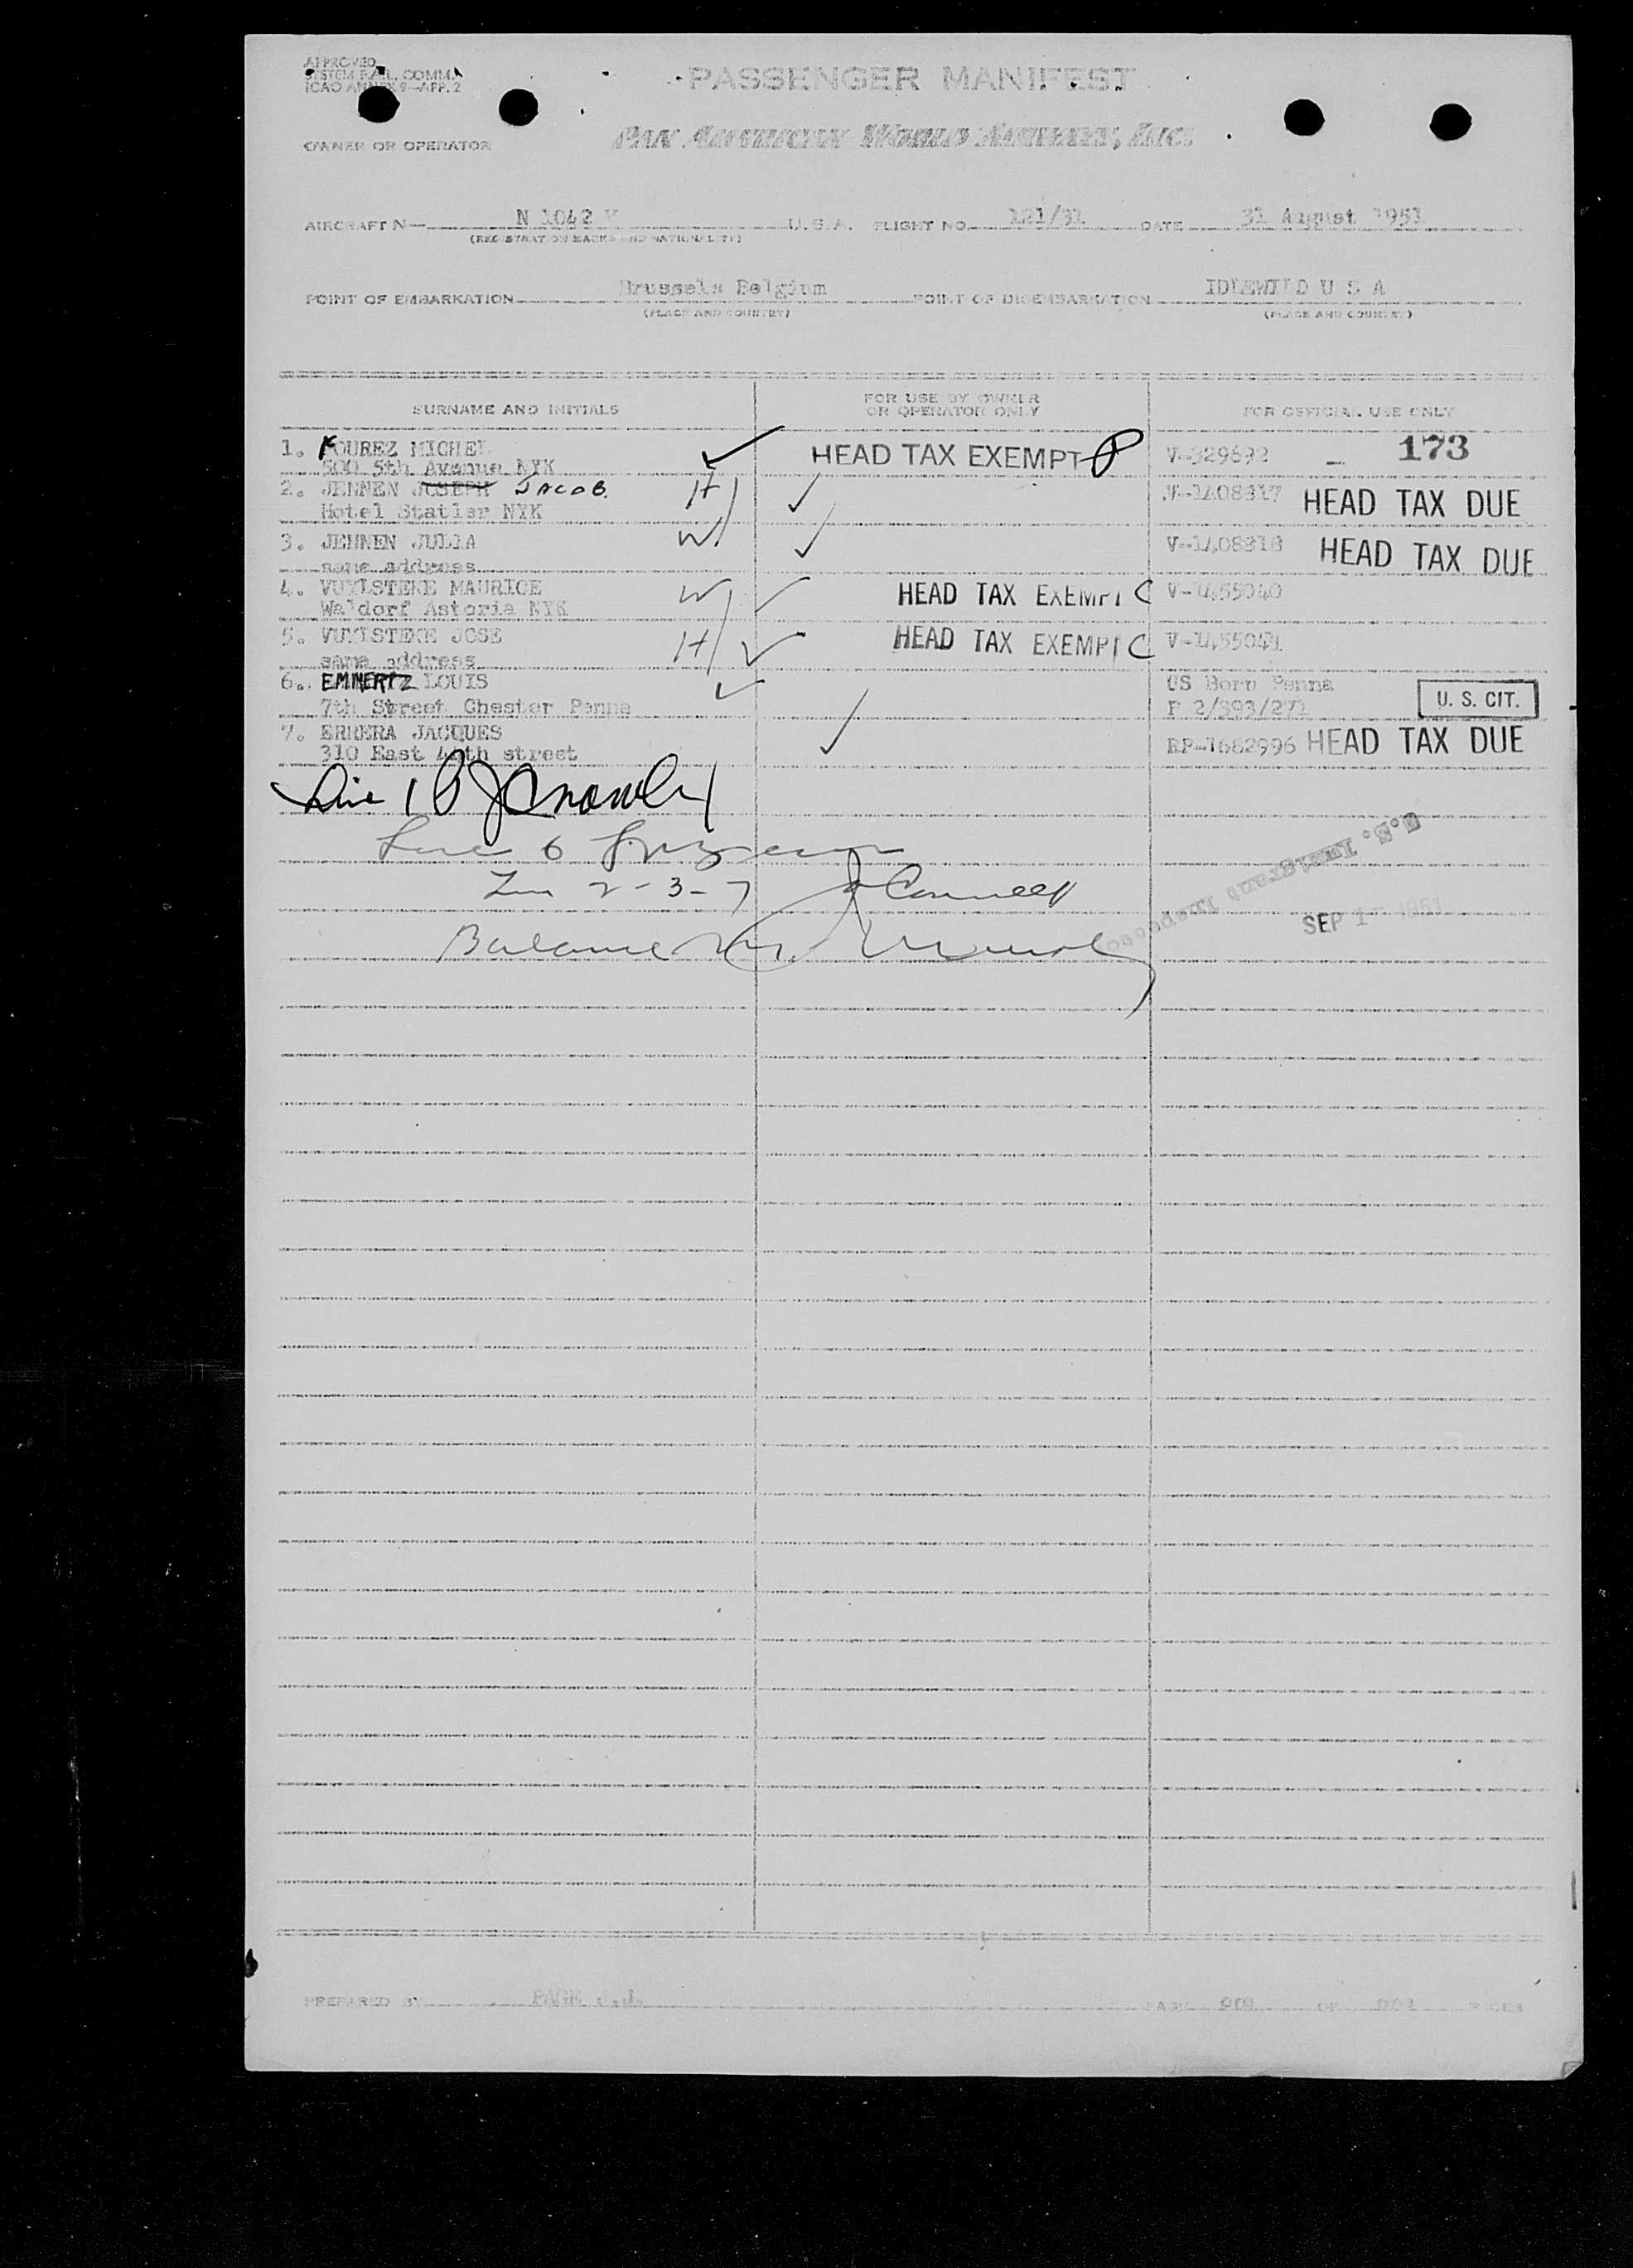 APPROVED
SYSTEM F.A.L. COMM.
ICAO ANNEX 9—APP. 2
PASSENGER MANIFEST
OWNER OR OPERATOR
PAN AMERICAN WORLD AIRWAYS, INC.
AIRCRAFT N— N 1042 V U.S.A. FLIGHT NO. 121/31 DATE 31 August 1951
(REGISTRATION MARKS AND NATIONALITY)
POINT OF EMBARKATION Brussels Belgium POINT OF DISEMBARKATION IDLEWILD U S A
(PLACE AND COUNTRY) (PLACE AND COUNTRY)
SURNAME AND INITIALS FOR USE BY OWNER OR OPERATOR ONLY FOR OFFICIAL USE ONLY
1. FOUREZ MICHEL HEAD TAX EXEMPT P V-329692 – 173
500 5th Avenue NYK
2. JENNEN JOSEPH JACOB. H V-1408317 HEAD TAX DUE
Hotel Statler NYK
3. JENNEN JULIA W V-1408318 HEAD TAX DUE
same address
4. VUYLSTEKE MAURICE W HEAD TAX EXEMPT C V-1455040
Waldorf Astoria NYK
5. VUYLSTEKE JOSE H HEAD TAX EXEMPT C V-1455041
same address
6. EMMERTZ LOUIS US Born Penna U. S. CIT.
7th Street Chester Penna P 2/593/271
7. ERRERA JACQUES RP-1682996 HEAD TAX DUE
310 East 44th street
Line 1
Line 6
Lin 2-3-7 J O'Connell
Balance
U.S. Immigrant Inspector
SEP 1- 1951
PREPARED BY PAGE one OF one PAGES